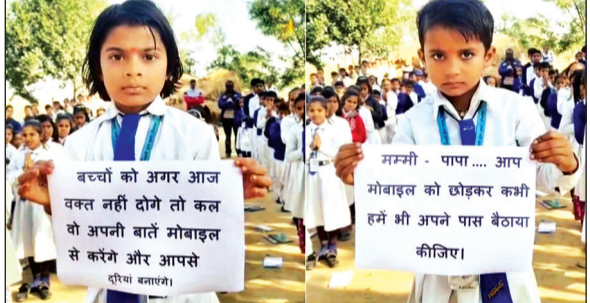 बच्चों को अगर आज
वक्त नहीं दोगे तो कल
वो अपनी बातें मोबाइल
से करेंगे और आपसे
दूरियां बनाएंगे।
मम्मी - पापा.... आप
मोबाइल को छोड़कर कभी
हमें भी अपने पास बैठाया
कीजिए।